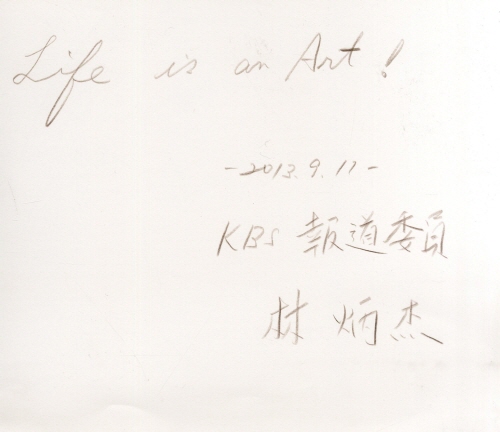 Life is an Art!
-2013. 9. 11-
KBS 報道委員
林 炳杰